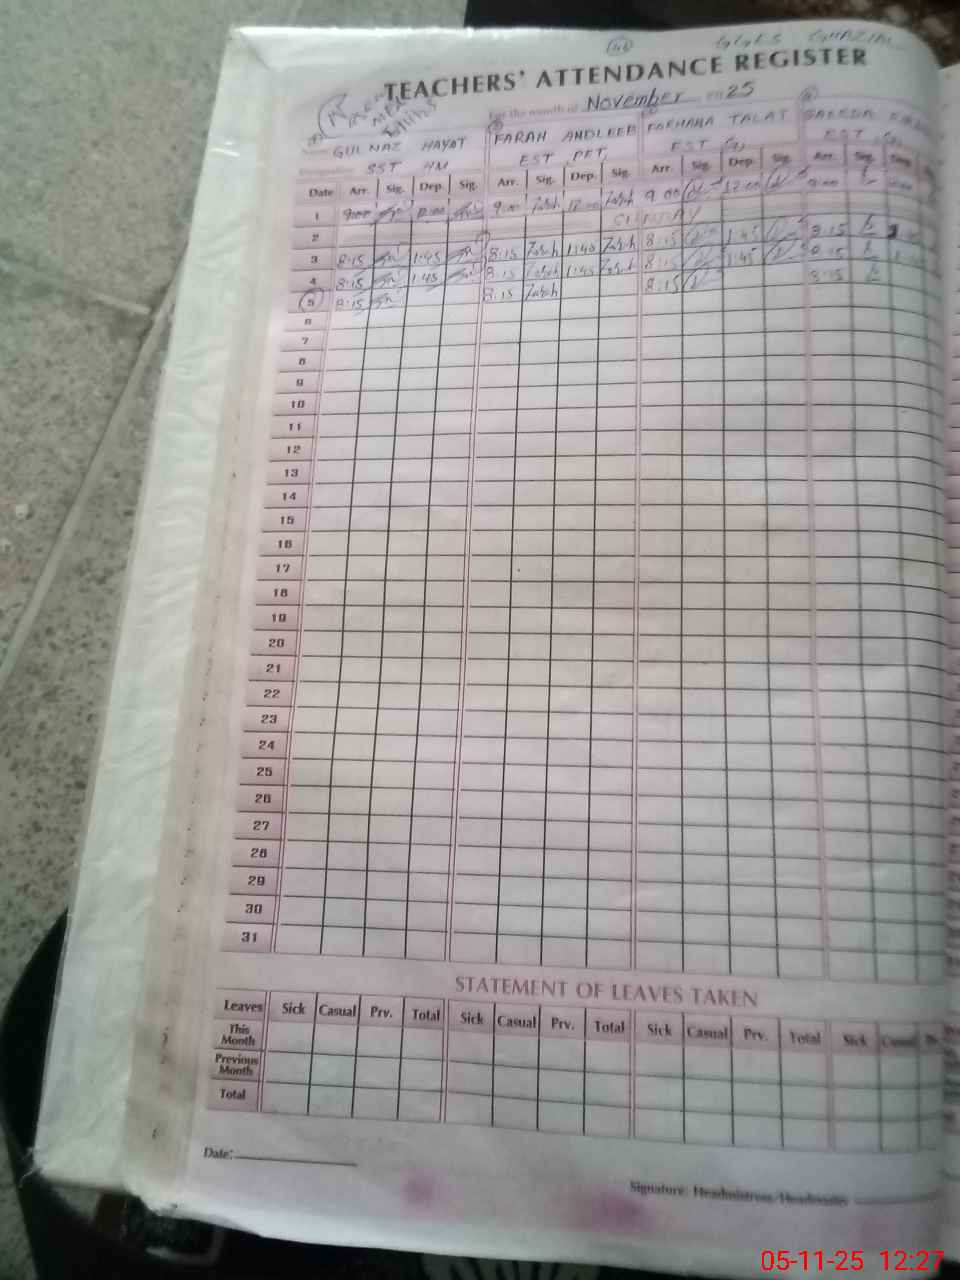 GGES GHAZIAL
TEACHERS' ATTENDANCE REGISTER
For the month of November 25
GULNAZ HAYAT FARAH ANDLEEB FARHANA TALAT SAEEDA
SST HM EST PET EST EST
Date Arr. Sig. Dep. Sig. Arr. Sig. Dep. Sig. Arr. Sig. Dep. Sig. Arr. Sig. Dep.
1 9:00 12:00 9:00 12:00 9:00 12:00 9:00
2 SUNDAY
3 8:15 1:45 8:15 1:45 8:15 1:45 8:15
4 8:15 1:45 8:15 1:45 8:15 1:45 8:15
5 8:15 8:15 8:15 8:15
6
7
8
9
10
11
12
13
14
15
16
17
18
19
20
21
22
23
24
25
26
27
28
29
30
31
STATEMENT OF LEAVES TAKEN
Leaves Sick Casual Prv. Total Sick Casual Prv. Total Sick Casual Prv. Total Sick Casual
This Month
Previous Month
Total
Date:
Signature: Headmistress/Headmaster
05-11-25 12:27